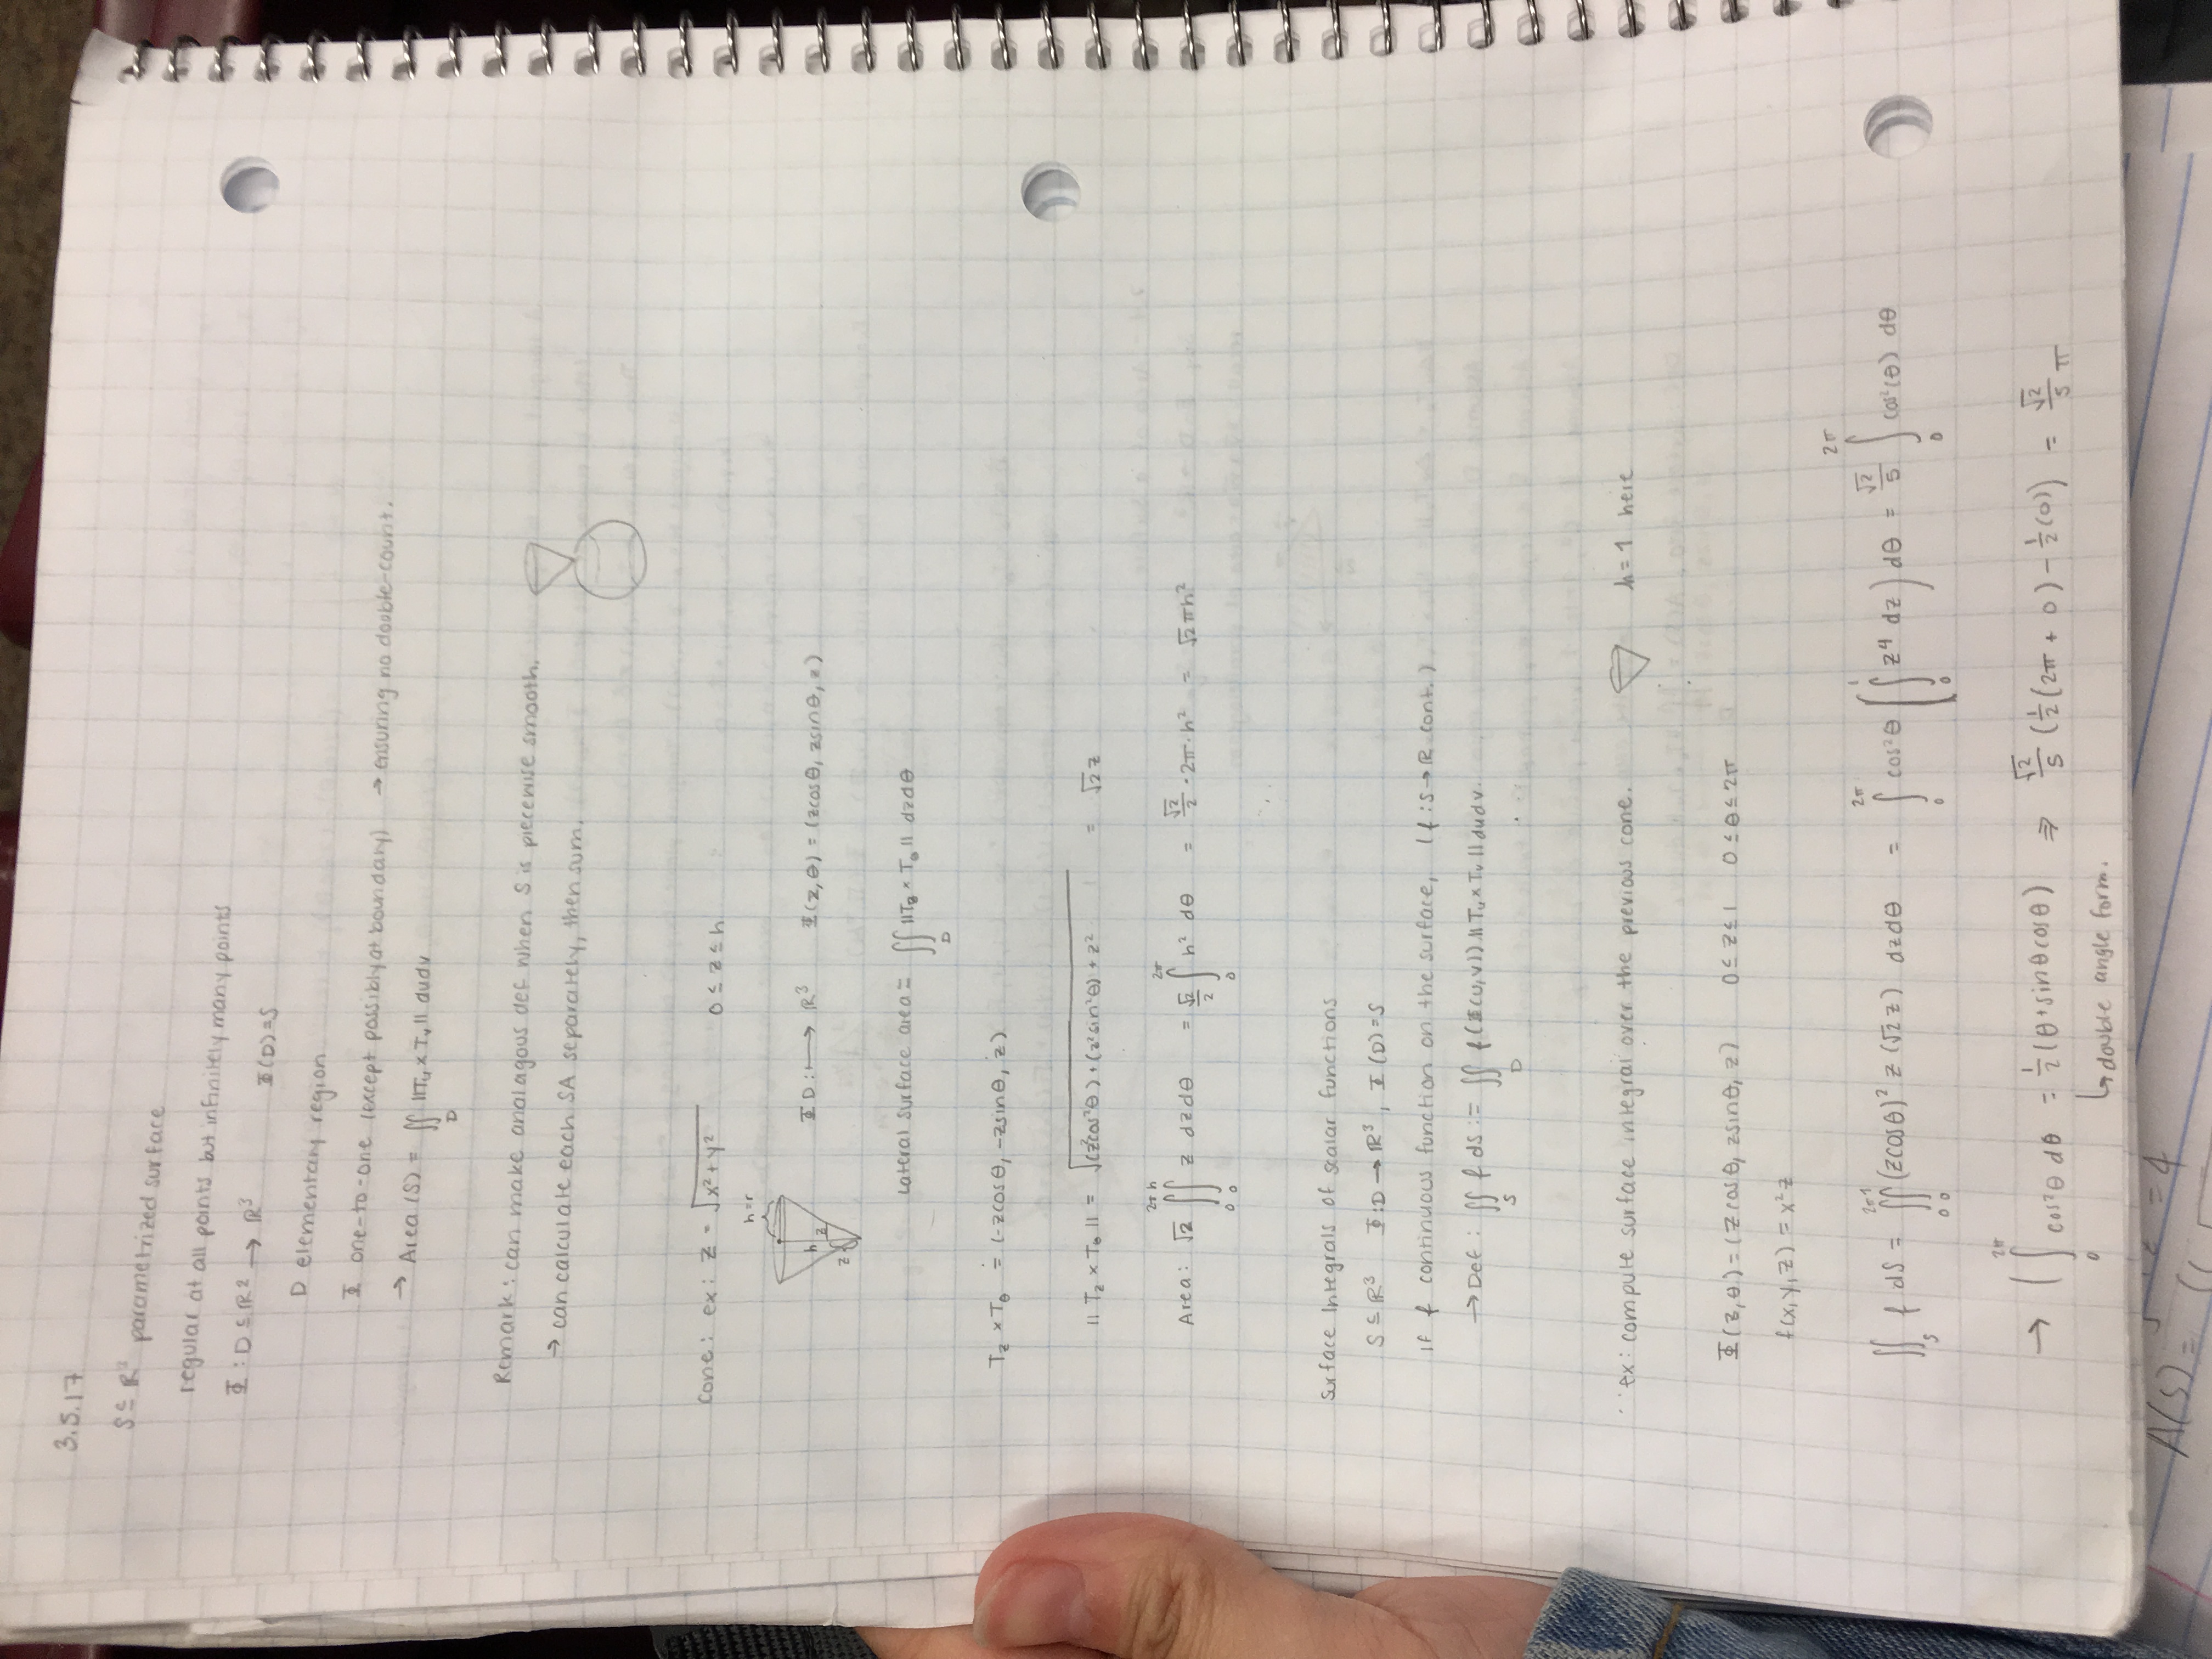 3.5.17
S ⊆ ℝ³ parametrized surface
regular at all points but infinitely many points
Φ : D ⊆ ℝ² → ℝ³ Φ(D) = S
D elementary region
Φ one-to-one (except possibly at boundary) → ensuring no double-count.
→ Area (S) = ∬_D ||Tᵤ × Tᵥ|| dudv
Remark: can make analagous def when S is piecewise smooth.
→ can calculate each SA separately, then sum.
Cone: ex: z = √(x² + y²) 0 ≤ z ≤ h
h = r
h
z
z
Φ D: ↦ ℝ³ Φ(z, θ) = (zcosθ, zsinθ, z)
Lateral surface area = ∬_D ||T_z × T_θ|| dzdθ
T_z × T_θ = (-zcosθ, -zsinθ, z)
||T_z × T_θ|| = √((z²cos²θ) + (z²sin²θ) + z²) = √2 z
Area: √2 ∫₀^2π ∫₀^h z dzdθ = √2/2 ∫₀^2π h² dθ = √2/2 · 2π · h² = √2 πh²
Surface Integrals of scalar functions
S ⊆ ℝ³ Φ: D → ℝ³, Φ(D) = S
If f continuous function on the surface, (f : S → ℝ cont.)
→ Def: ∬_S f dS := ∬_D f(Φ(u,v)) ||Tᵤ × Tᵥ|| dudv.
ex: compute surface integral over the previous cone. h = 1 here
Φ(z, θ) = (zcosθ, zsinθ, z) 0 ≤ z ≤ 1 0 ≤ θ ≤ 2π
f(x, y, z) = x²z
∬_S f dS = ∫₀^2π ∫₀^1 (zcosθ)² z (√2 z) dzdθ = ∫₀^2π cos²θ (∫₀^1 z⁴ dz) dθ = √2/5 ∫₀^2π cos²(θ) dθ
→ (∫₀^2π cos²θ dθ = 1/2 (θ + sinθcosθ) ⇒ √2/5 (1/2 (2π + 0) - 1/2 (0)) = √2/5 π
↳ double angle form.
A(S) =
= 4